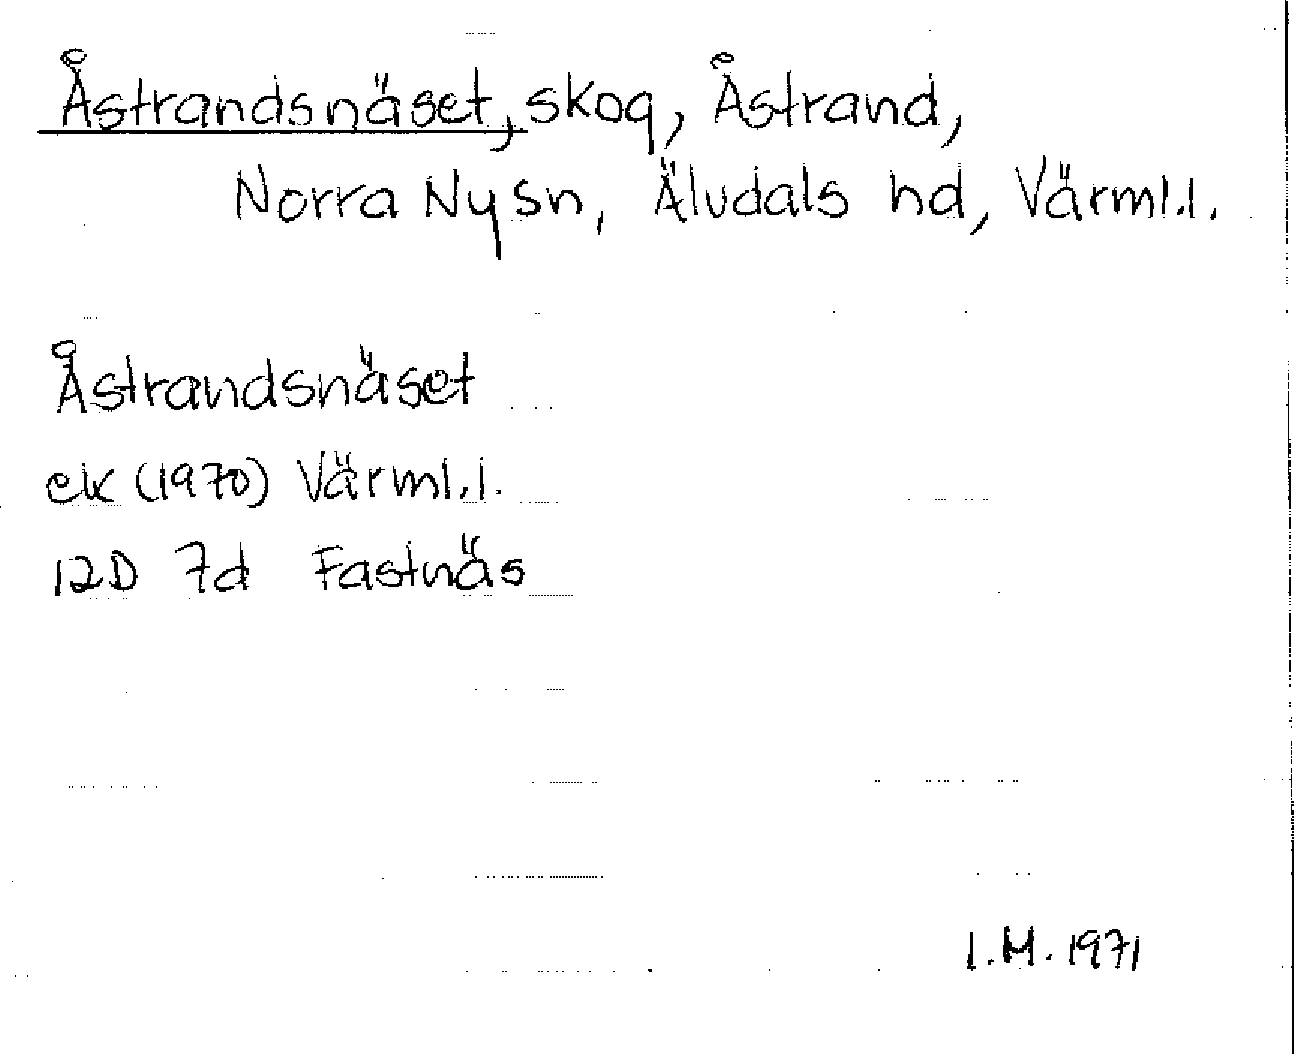 Åstrandsnäset, skog, Åstrand,
Norra Ny sn, Älvdals hd, Värml.l.
Åstrandsnäset
ek (1970) Värml.l.
12D 7d Fastnäs
I.M. 1971